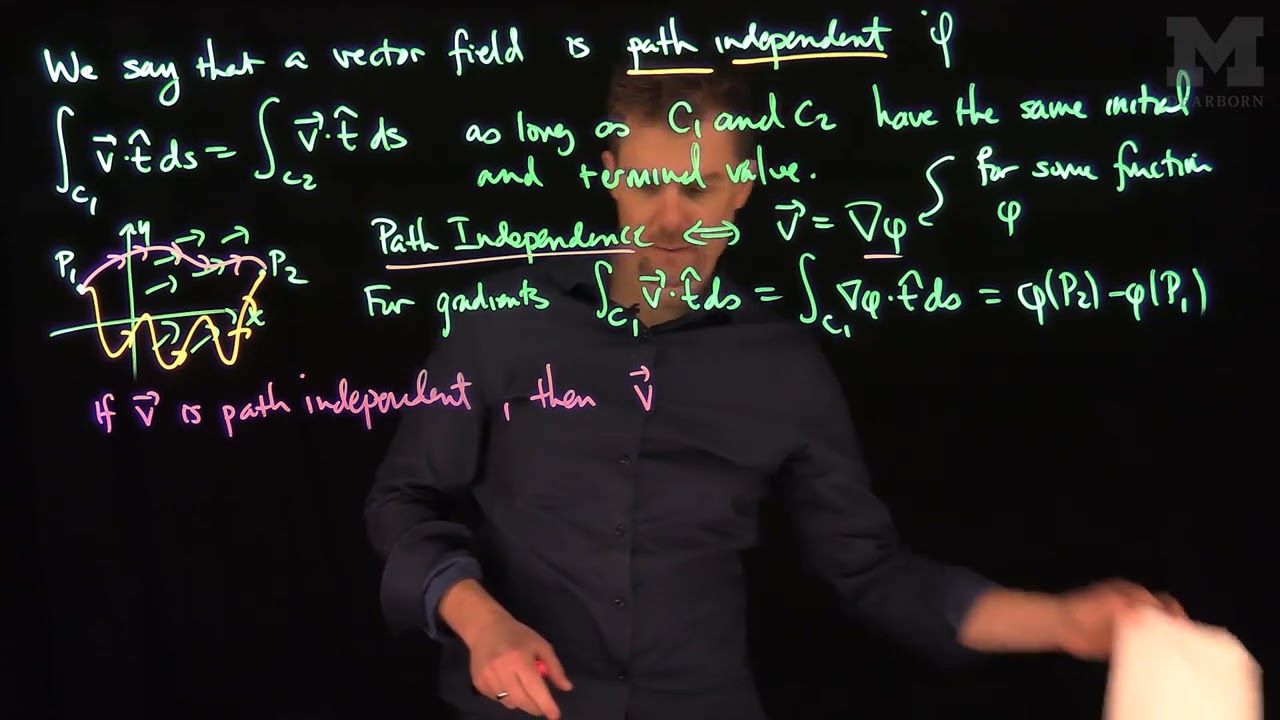 We say that a vector field is path independent if
∫_{C₁} v⃗·t̂ ds = ∫_{C₂} v⃗·t̂ ds as long as C₁ and C₂ have the same initial
and terminal value.
Path Independence ⟺ v⃗ = ∇φ for some function
φ
For gradients ∫_{C₁} v⃗·t̂ ds = ∫_{C₁} ∇φ·t̂ ds = φ(P₂) - φ(P₁)
P₁ y P₂
x
If v⃗ is path independent, then v⃗
M
DEARBORN